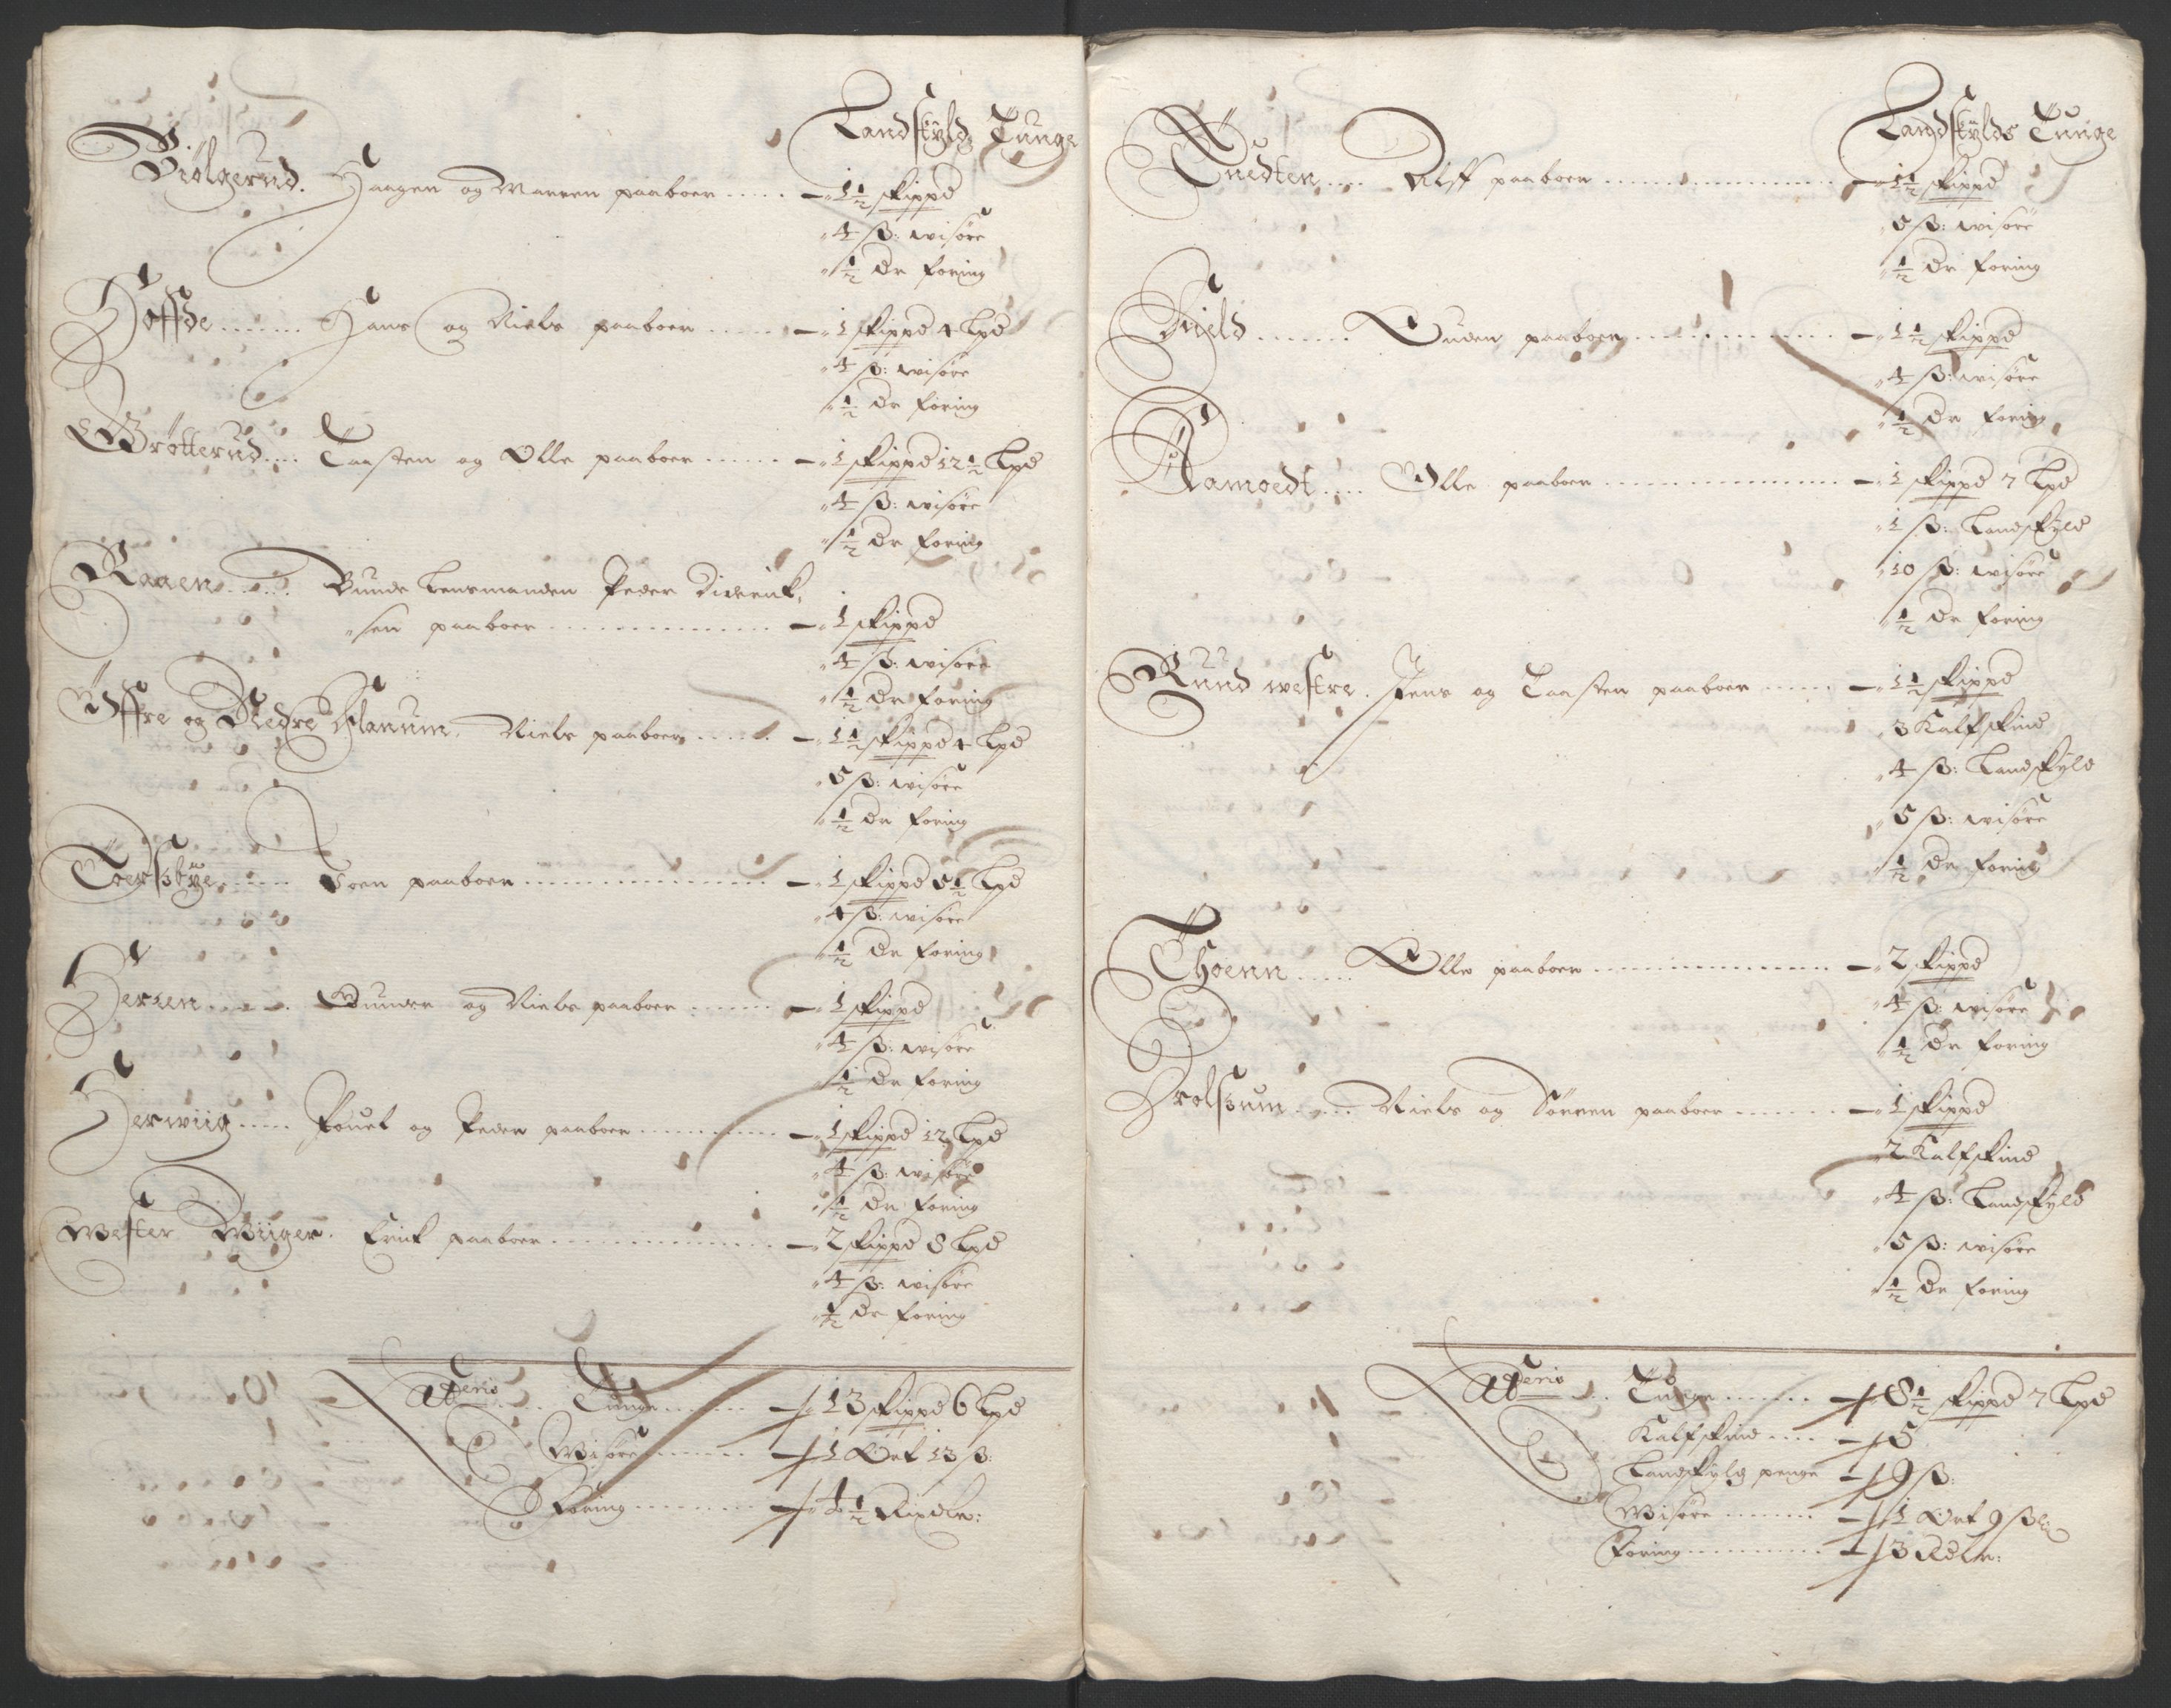 Landskyld Tunge
Biølgerud. Haagen og Maren paaboer ..... 1½ skippd
4 ß: wisøre
½ dr foring
Hoffde ....... Hans og Niels paaboer ..... 1 skippd 4 Lpd
4 ß: wisøre
½ dr foring
Grøtterud.... Taasten og Olle paaboer ...... 1 skippd 12½ Lpd
4 ß: wisøre
½ dr foring
Raaen ...... Bunde Lensmanden Peder Diderik,
sen paaboer ............... 1 skippd
4 ß: wisøre
½ dr foring
Øffre og Nedre Flanum, Niels paaboer ...... 1½ skippd 4 Lpd
5 ß: wisøre
½ dr foring
Toer ...... paaboer ................. 1 skippd 5½ Lpd
4 ß: wisøre
½ dr foring
Hersen ...... Gunder og Niels paaboer ...... 1 skippd
4 ß: wisøre
½ dr foring
Herwiig ..... Pouel og Peder paaboer .......... 1 skippd 12 Lpd
4 ß: wisøre
½ dr foring
Wester Wiiger. Erik paaboer ............... 2 skippd 8 Lpd
4 ß: wisøre
½ dr foring
Lateris .... Tunge ....... 13 skippd 6 Lpd
Wisøre ....... 1 Ort 13 ß:
Foring ......... 4½ Rixdlr:
Landskylds Tunge
.... Alff paaboer ................. 1½ skippd
5 ß: wisøre
½ dr foring
Field ....... Guden paaboer ............. 1½ skippd
4 ß: wisøre
½ dr foring
Aamoedt .... Olle paaboer ................. 1 skippd 7 Lpd
1 ß: Landskyld
10 ß: wisøre
½ dr foring
Rund westre. Jens og Taasten paaboer ...... 1½ skippd
3 Kalfskind
4 ß: Landskyld
5 ß: wisøre
½ dr foring
Thoenn ..... Olle paaboer ................. 2 skippd
4 ß: wisøre
½ dr foring
Drolsoum ..... Niels og Søren paaboer ........ 1 skippd
2 Kalfskind
4 ß: Landskyld
5 ß: wisøre
½ dr foring
Lateris .. Tunge ....... 8½ skippd 7 Lpd
Kalfskind .... 5
Landskyld penge 9 ß:
Wisøre ....... 1 Ort 9 ß
Foring .......... 3 Rdlr: